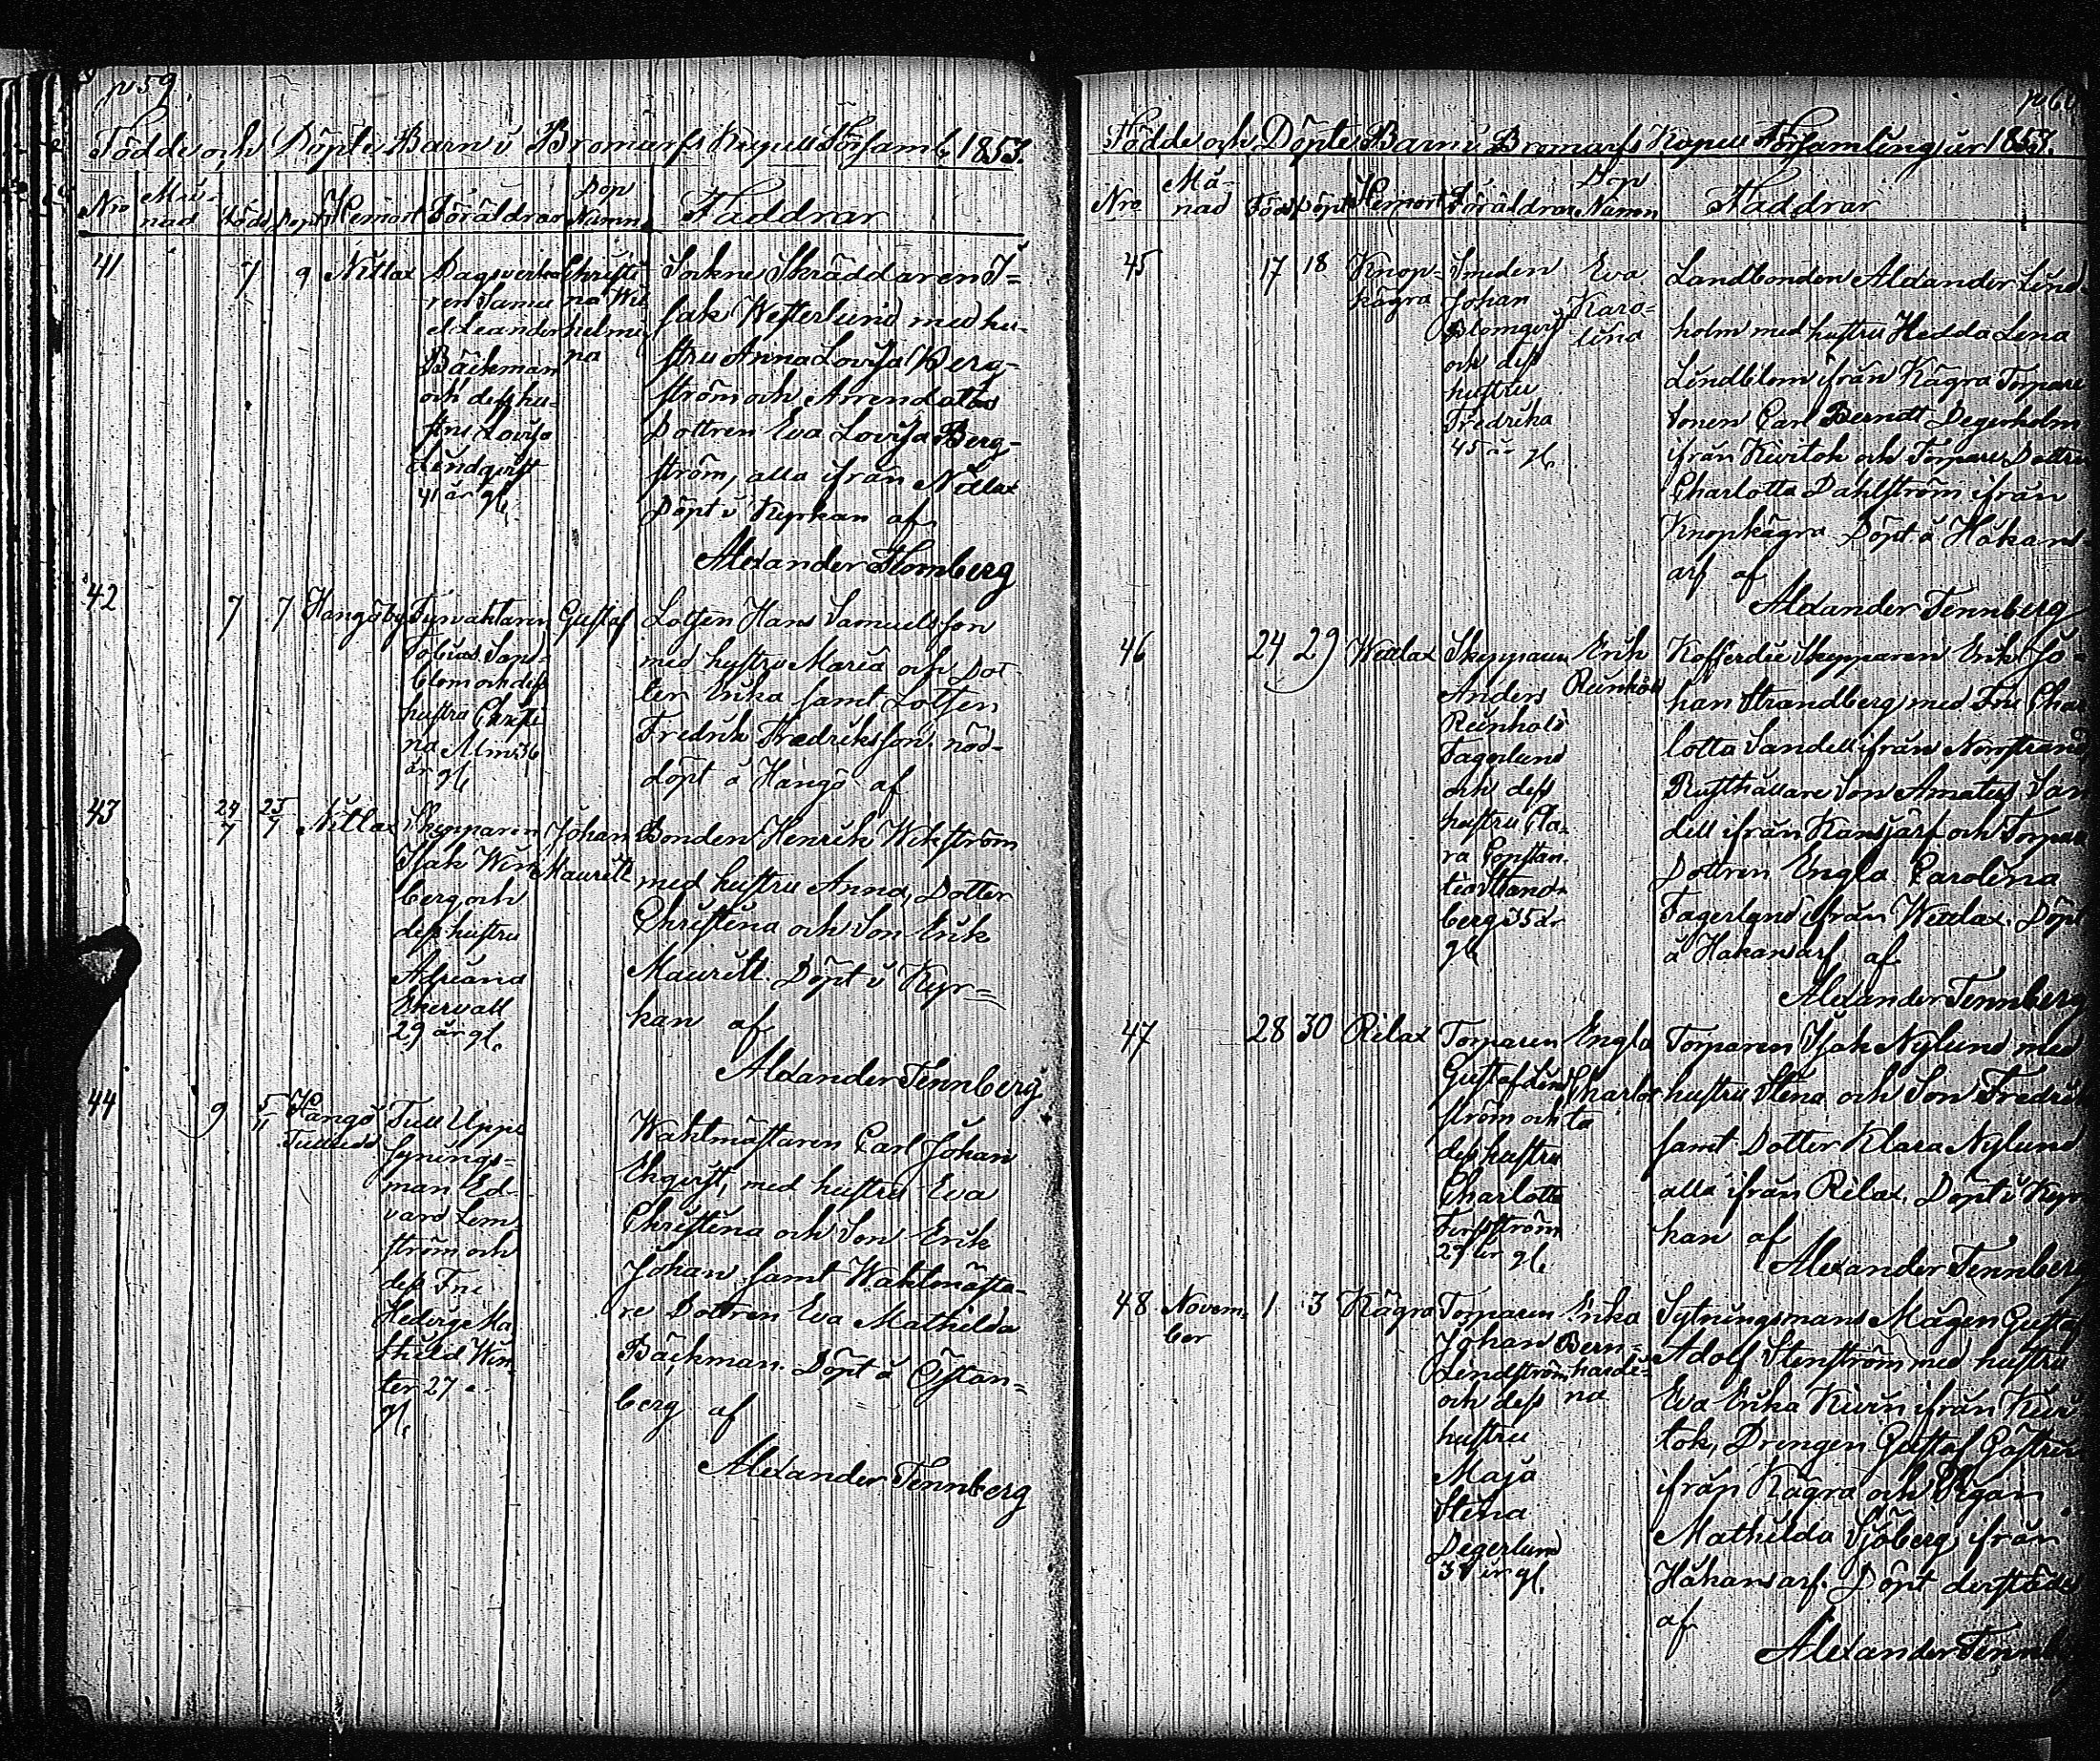 p 59.
Födde och Döpte Barn i Bromarfs Kapell Församl. 1853.
Nro Månad Född Döpt Hemort Föräldrar Dop Namn Faddrar
41 7 9 Nitlax
Dagsverkaren
Samuel Leander
Bäckman
och dess hu-
stru Lovisa
Lindqvist
41 år gl.
Christi
na Wil
helmi
na
Sockne Skräddaren I-
sak Westerlund med hu-
stru Anna Lovisa Berg-
ström och Arrendators
Dottren Eva Lovisa Berg-
ström, alla ifrån Nitlax
Döpt i Kyrkan af
Alexander
42 7 7 Hangöby
Fyrvaktaren
Tobias Sand-
blom och dess
hustru Christi
na Alm 36
år gl.
Gustaf
Lotsen Hans Samuelsson
med hustru Maria och Dot
ter Erika samt Lotsen
Fredrik Fredriksson nöd-
döpt å Hangö af
43 24/7 25/7 Nitlax
Skepparen
Isak Win
berg och
dess hustru
Adriana
Ekervall
29 år gl.
Johan
Mauritz
Bonden Henrik Wikström
med hustru Anna, Dotter
Christina och Son Erik
Mauritz. Döpt i Kyr=
kan af
Alexander Tennberg
44 9 5/11 Hangö
Tullen
Tull Upp-
synings-
man Ed-
vard Lem-
ström och
dess Fru
Hedvig Ma
thild Win
ter 27
gl.
Waktmästaren Carl Johan
Ekqvist, med hustru Eva
Christina och Son Erik
Johan samt Waktmästa-
re Dottren Eva Mathilda
Bäckman. Döpt å Östan=
berg af
Alexander Tennberg
p 60
Födde och Döpte Barn i Bromarfs Kapell Församling år 1853.
Nro Månad Född Döpt Hemort Föräldrar Dop Namn Faddrar
45 17 18 Knop=
kägra
Smeden
Johan
Blomqvist
och dess
hustru
Fredrika
45 år gl.
Eva
Karo=
lina
Landbonden Alexander Lind-
holm med hustru Hedda Lena
Lindblom ifrån Kägra Torpare
Sonen Carl Berndt Degerholm
ifrån Kivitok och Torpare Dottren
Charlotta Dahlström ifrån
Knopkägra Döpt å Håkans
arf af
Alexander Tennberg
46 24 29 Wättlax
Skepparen
Anders
Reinhold
Fagerlund
och dess
hustru Cla-
ra Constan-
tia Strand-
berg 35 år
gl.
Erik
Reinhold
Kofferdie Skepparen Erik Jo-
han Strandberg med Fru Char
lotta Sandell ifrån Norrstrand,
Rusthållare Son Amatus San
dell ifrån Kansjärf och Torpare
Dottren Engla Carolina
Fagerlund ifrån Wättlax. Döpt
å Håkansarf af
Alexander Tennberg
47 28 30 Rilax
Torparen
Gustaf Lind
ström och
dess hustru
Charlotta
Forsström
29 år gl.
Engla
Charlot
ta
Torparen Isak Nylund med
hustru Stina och Son Fredrik
samt Dotter Klara Nylund
alla ifrån Rilax. Döpt i Kyr
kan af
Alexander Tennberg
48 Novem-
ber
1 3 Kägra
Torparen
Johan
Lindström
och dess
hustru
Maja
Stina
Degerlund
år gl.
Erika
Bern=
hardi=
na
Sytningsmans Mågen Gustaf
Adolf Stenström med hustru
Eva Erika Kivin ifrån Kivi
tok, Drengen Gustaf Gästrin
ifrån Kägra och Pigan
Mathilda Sjöberg ifrån
Håkansarf. Döpt derstädes
af
Alexander Tennb